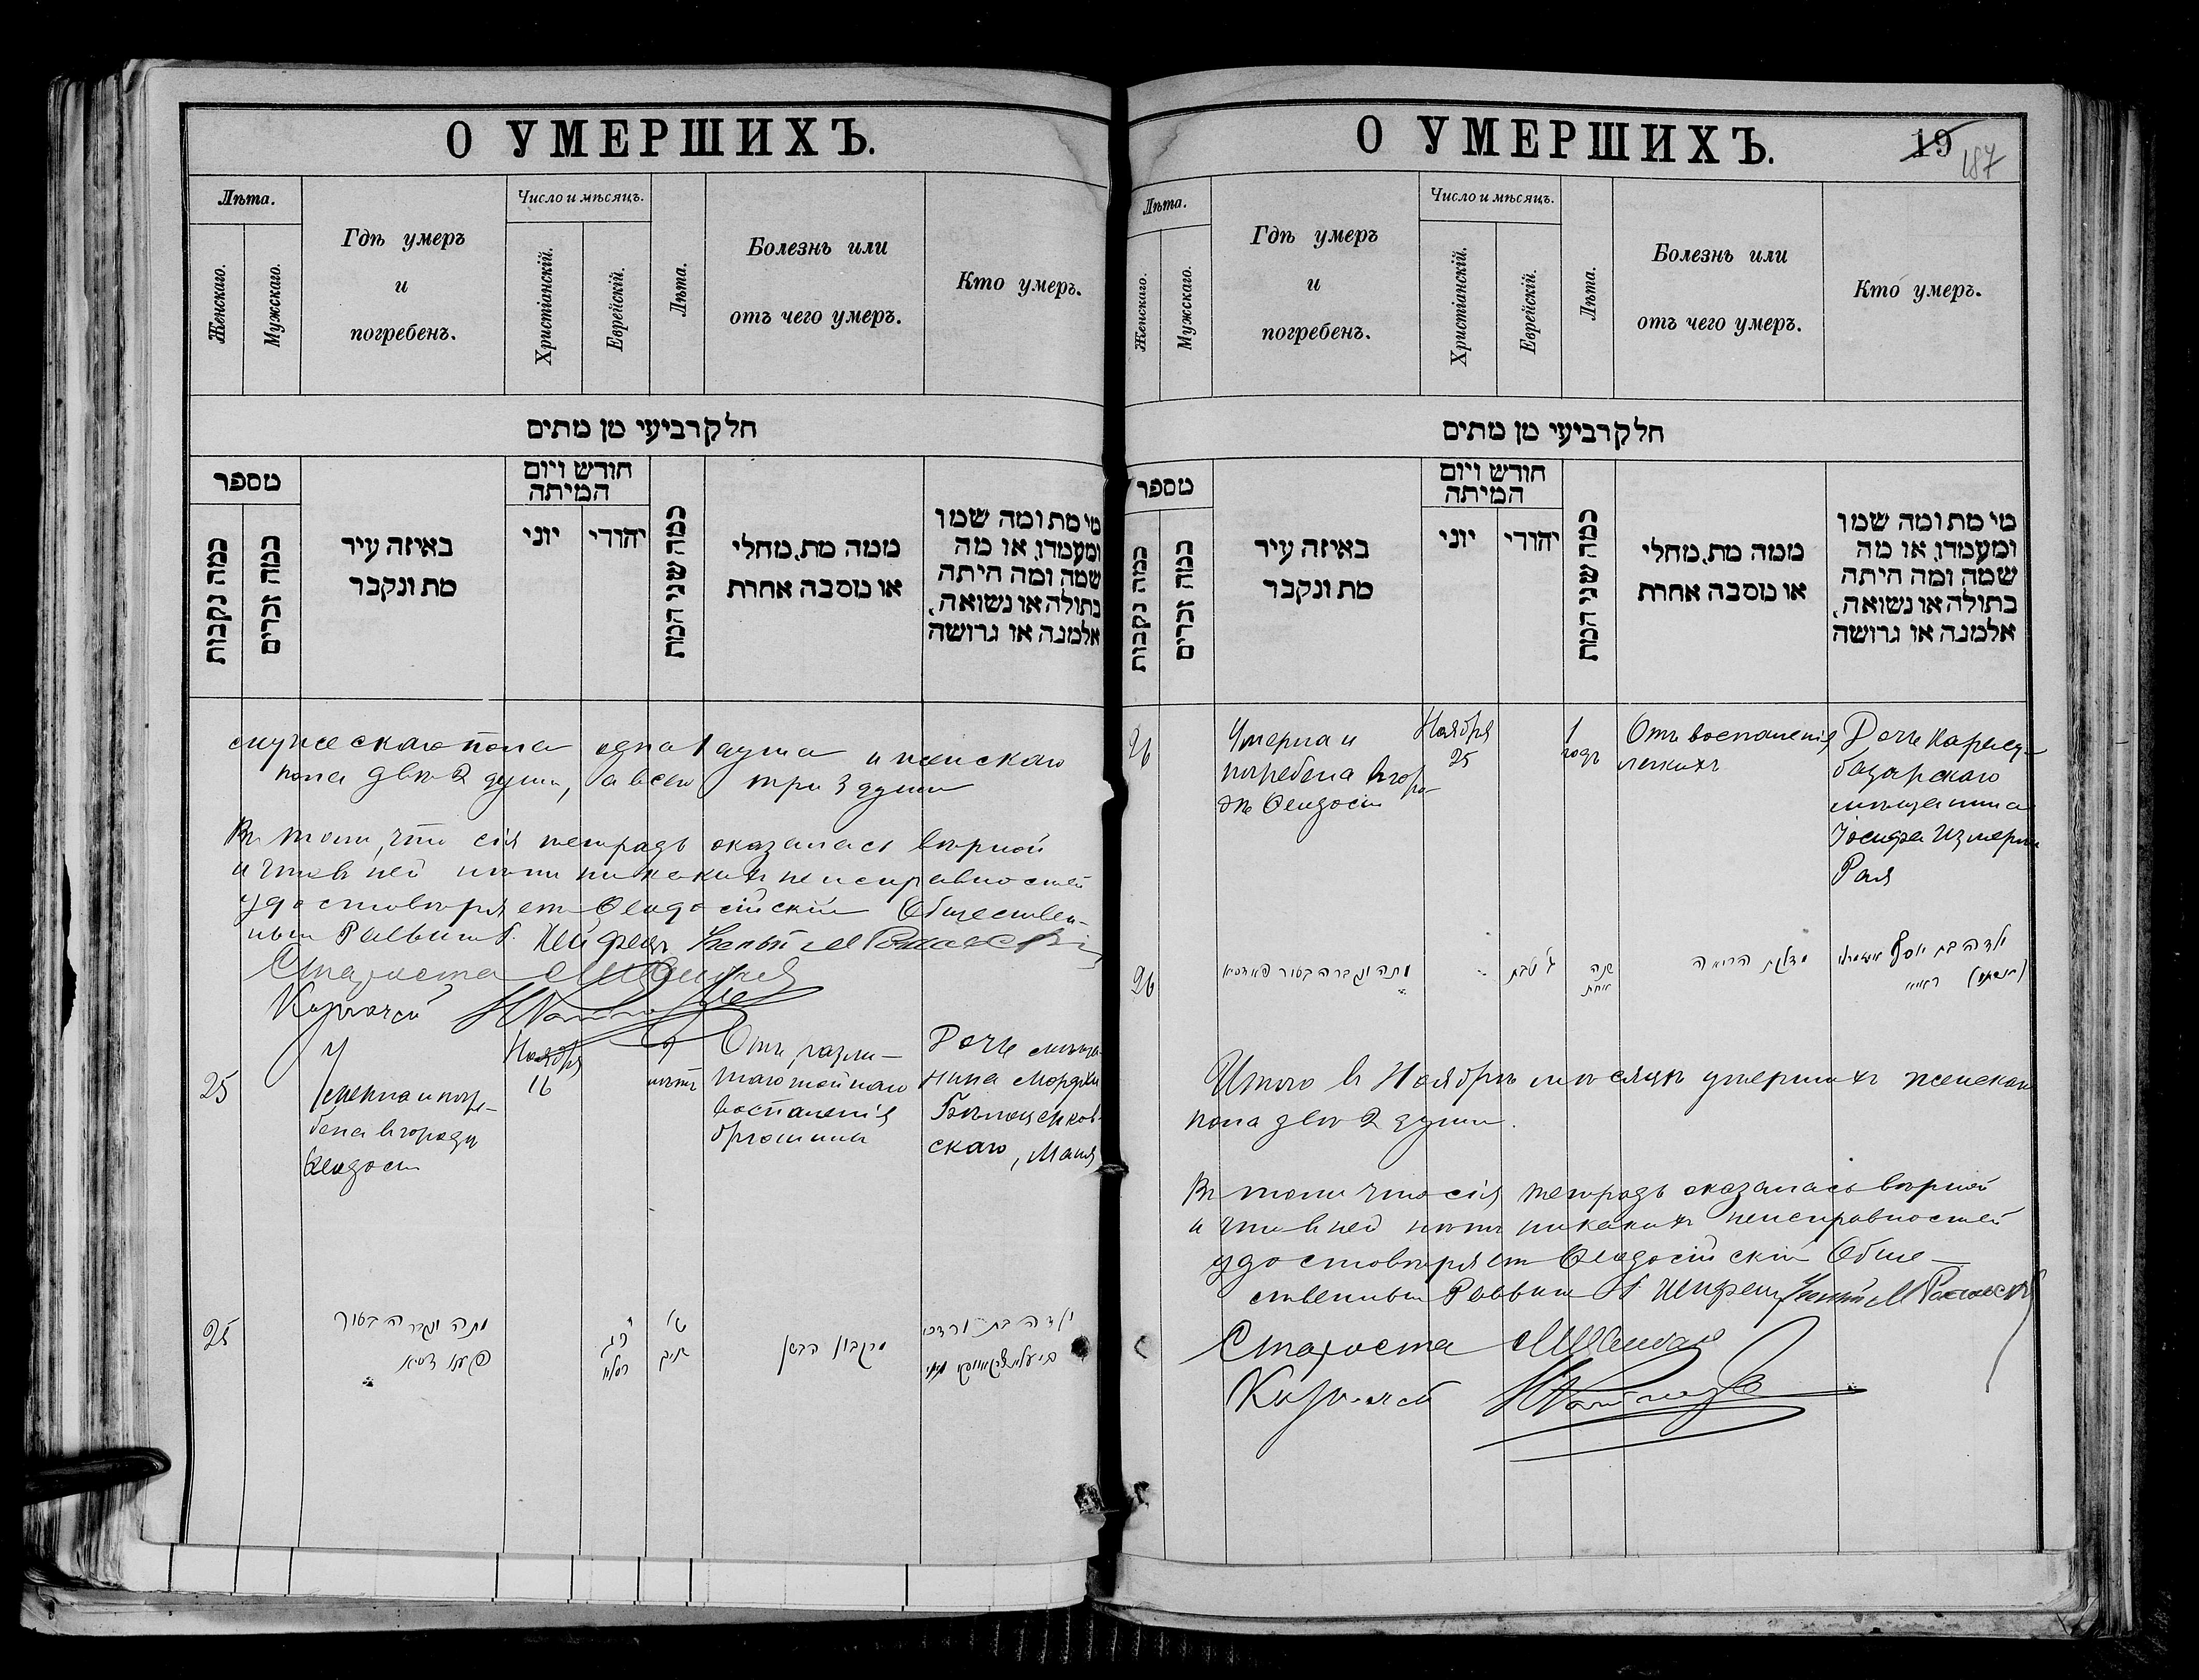 О УМЕРШИХЪ.
Лѣта.
Женскаго.
Мужскаго.
Гдѣ умеръ
и
погребенъ.
Число и мѣсяцъ.
Христіанскій.
Еврейскій.
Лѣта.
Болезнь или
отъ чего умеръ.
Кто умеръ.
חלק רביעי מן מתים
מספר
כמה נקבות
כמה זכרים
באיזה עיר
מת ונקבר
חודש ויום
המיתה
יוני
יהודי
כמה שני המת
ממה מת, מחלי
או מסבה אחרת
מי מת ומה שמו
ומעמדו, או מה
שמה ומה היתה
בתולה או נשואה,
אלמנה או גרושה
мужескаго пола одна 1 душа и женскаго
пола двѣ 2 души, а всего три 3 души
Въ томъ, что сія тетрадь оказалась вѣрной
и что въ ней нѣтъ никакихъ неисправностей
удостовѣряетъ Ѳеодосійскій Обществен-
ный Раввинъ
Староста
Казначей
25
Умерла и погре-
бена въ городѣ
Ѳеодосіи
Ноября
16
9
лѣтъ
Отъ
воспаленія
брюшины
Дочь мѣща-
нина Мордхи
скаго, Маня
25
מתה ונקברה בעיר
כסליו
ט'
שנים
ילדה בת מרדכי
О УМЕРШИХЪ.
19
187
Лѣта.
Женскаго.
Мужскаго.
Гдѣ умеръ
и
погребенъ.
Число и мѣсяцъ.
Христіанскій.
Еврейскій.
Лѣта.
Болезнь или
отъ чего умеръ.
Кто умеръ.
חלק רביעי מן מתים
מספר
כמה נקבות
כמה זכרים
באיזה עיר
מת ונקבר
חודש ויום
המיתה
יוני
יהודי
כמה שני המת
ממה מת, מחלי
או מסבה אחרת
מי מת ומה שמו
ומעמדו, או מה
שמה ומה היתה
בתולה או נשואה,
אלמנה או גרושה
26
Умерла и
погребена въ горо-
дѣ Ѳеодосіи
Ноября
25
1
годъ
Отъ воспаленія
легкихъ
Дочь Карасу-
базарскаго
мѣщанина
Іосифа
Рая
26
מתה ונקברה בעיר
ג' טבת
שנה
אחת
דלקת הריאה
ילדה בת יוסף
Итого въ Ноябрѣ мѣсяцѣ умершихъ женскаго
пола двѣ 2 души.
Въ томъ что сія тетрадь оказалась вѣрной
и что въ ней нѣтъ никакихъ неисправностей
удостовѣряетъ Ѳеодосійскій Обще-
ственный Раввинъ
Староста
Казначей